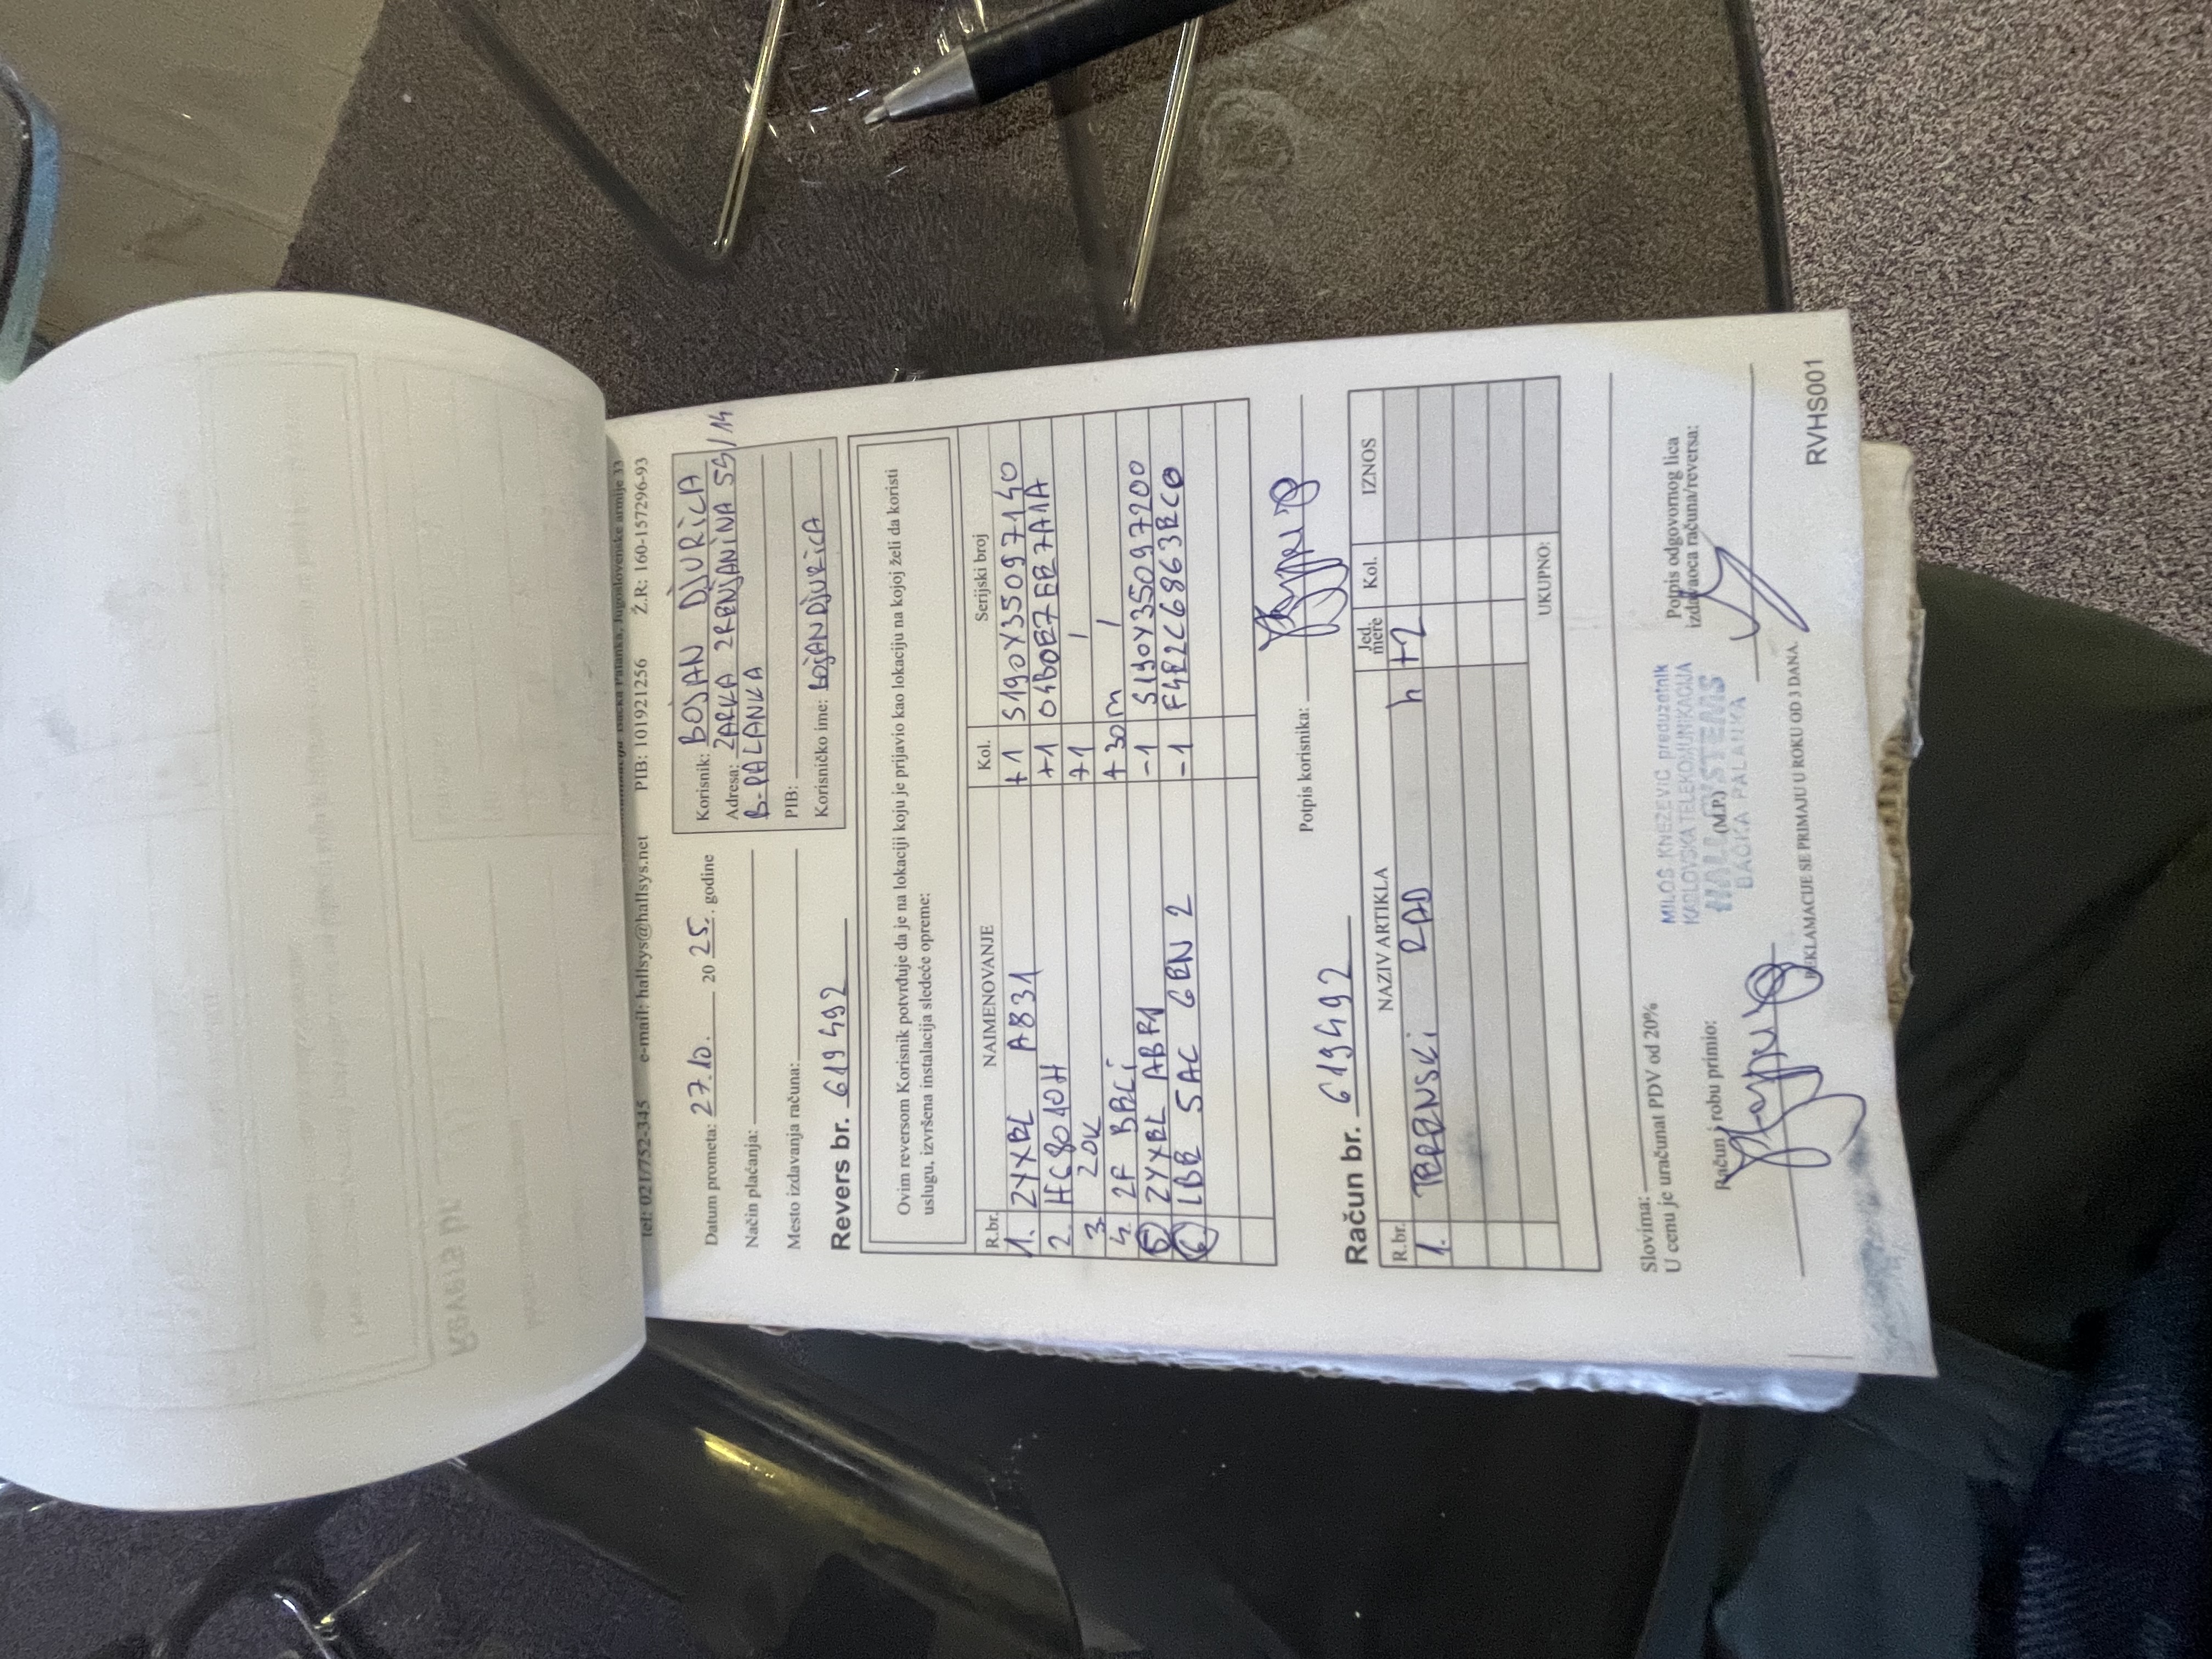 Tel: 021/752-345 e-mail: hallsys@hallsys.net PIB: 101921256 Ž.R: 160-157296-93
Datum prometa: 27.10. 2025. godine
Način plaćanja:
Mesto izdavanja računa:
Korisnik: BOJAN DJURICA
Adresa: ŽARKA ZRENJANINA 55/14
B-PALANKA
PIB:
Korisničko ime: BOJANDJURICA
Revers br. 619492
Ovim reversom Korisnik potvrđuje da je na lokaciji koju je prijavio kao lokaciju na kojoj želi da koristi
uslugu, izvršena instalacija sledeće opreme:
R.br. NAIMENOVANJE Kol. Serijski broj
1. ZYXEL AB31 +1 S190Y35097140
2. HC8010H +1 04B0E7EE7A1A
3. ZOK +1 /
4. 2F BELI +30m /
5 ZYXEL +1 -1 S190Y35097200
6 LBE 5AC GEN 2 -1 F4E2C6863BC0
Potpis korisnika:
Račun br. 619492
R.br. NAZIV ARTIKLA Jed. mere Kol. IZNOS
1. TERENSKI RAD h +2
UKUPNO:
Slovima:
U cenu je uračunat PDV od 20%
Račun i robu primio:
MILOŠ KNEŽEVIĆ preduzetnik
KABLOVSKA TELEKOMUNIKACIJA
(M.P.)
HALL SYSTEMS
BAČKA PALANKA
Potpis odgovornog lica
izdavaoca računa/reversa:
REKLAMACIJE SE PRIMAJU U ROKU OD 3 DANA.
RVHS001